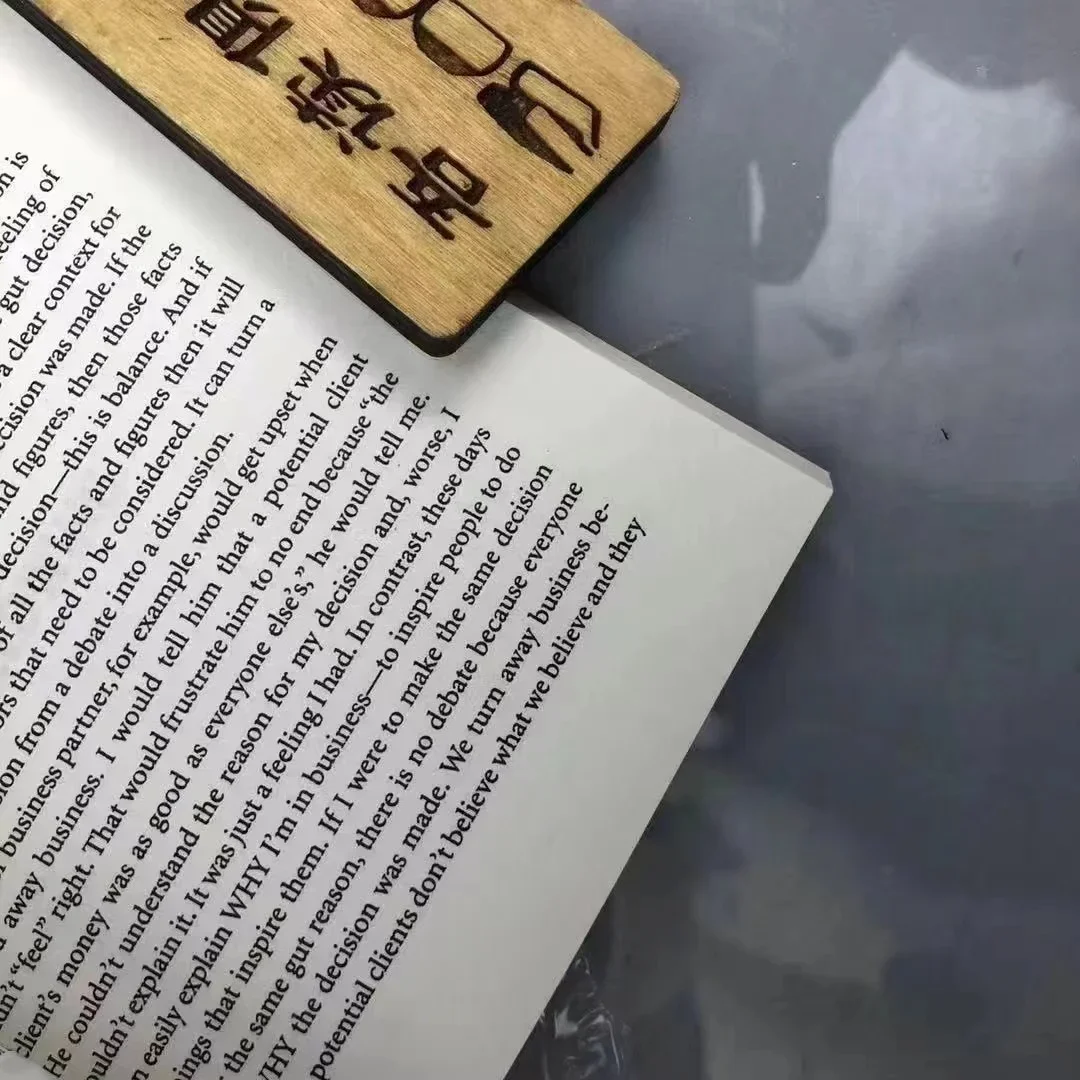 吾读
is
of
gut decision,
a clear context for
was made. If the
figures, then those facts
decision—this is balance. And if
of all the facts and figures then it will
that need to be considered. It can turn a
from a debate into a discussion.
business partner, for example, would get upset when
away business. I would tell him that a potential client
“feel” right. That would frustrate him to no end because “the
client’s money was as good as everyone else’s,” he would tell me.
He couldn’t understand the reason for my decision and, worse, I
explain it. It was just a feeling I had. In contrast, these days
easily explain WHY I’m in business—to inspire people to do
that inspire them. If I were to make the same decision
the same gut reason, there is no debate because everyone
WHY the decision was made. We turn away business be-
potential clients don’t believe what we believe and they